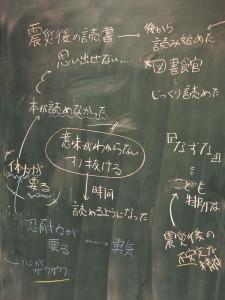 震災後の読書
思い出せない…
後から
読み始めた
図書館
じっくり読めた
本が読めなかった
意味がわからない
引抜ける
体力が
要る
時間
読めるようになった
忍耐力が
要る
勇気
心がザワザワ
『なずな』
こども
特別な
震災後の